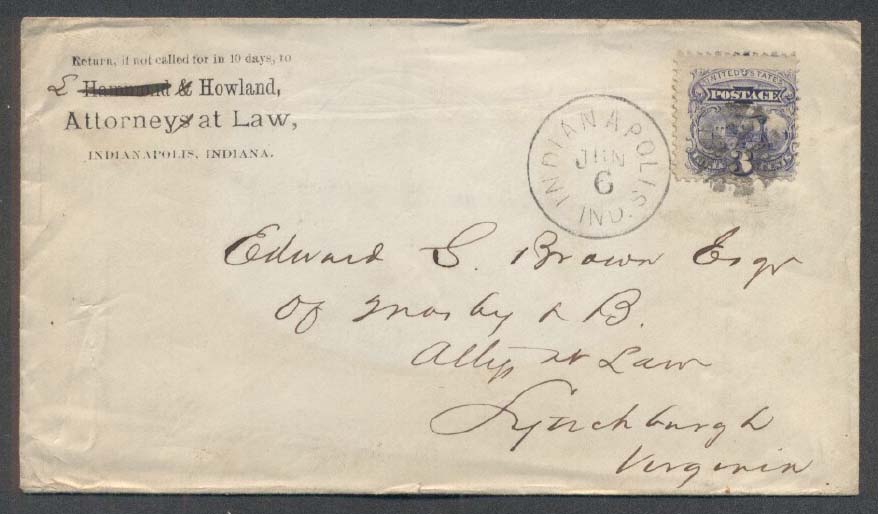 Return, if not called for in 10 days, to
L Hammond & Howland,
Attorneys at Law,
INDIANAPOLIS, INDIANA.
INDIANAPOLIS
JUN
6
IND.
UNITED STATES
POSTAGE
3
Edward S. Brown Esqr
of Mosby & B.
Attys at Law
Lynchburgh
Virginia